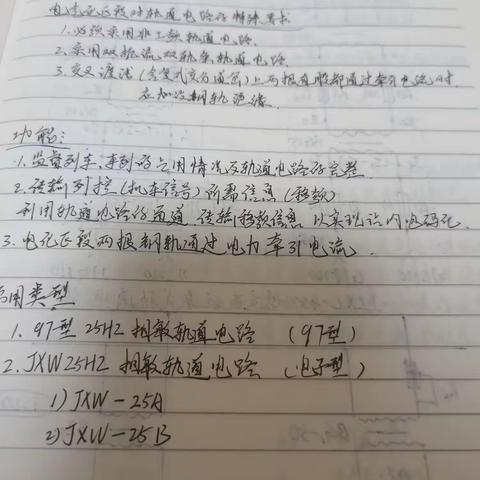 电气化区段对轨道电路的特殊要求
1.必须采用非工频轨道电路.
2.采用双轨流双轨条轨道电路.
3.交叉渡线(含复式交分道岔)上两根直股都通过牵引电流时,
应加设钢轨绝缘.
功能:
1.监督列车、车列的占用情况及轨道电路的完整.
2.传输列控(机车信号)所需信息(移频)
利用轨道电路的通道,传输移频信息,以实现站内电码化.
3.电化区段两根钢轨通过电力牵引电流.
用类型
1.97型25HZ相敏轨道电路 (97型)
2.JXW25HZ相敏轨道电路 (电子型)
1)JXW-25A
2)JXW-25B